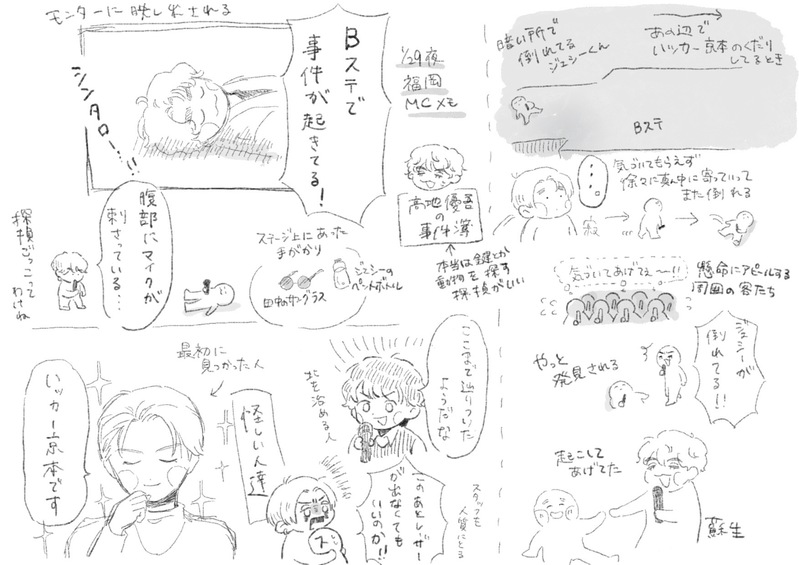 モンターに映し出される
Bステで
事件が
起きてる！
シンタロー…!!
1/29夜
福岡
MCメモ
高地優吾
の
事件簿
本当は鍵とか
動物を探す
探偵がいい
腹部にマイクが
刺さっている…
探偵ごっこって
わけね
ステージ上にあった
手がかり
田中のサングラス
ジェシーの
ペットボトル
最初に
見つかった人
いッカー京本です
怪しい人達
ここまで辿りついた
ようだな
北を治める人
このあとレザー
が出なくても
いいのか!!
ス
スタッフを
人質にとる
暗い所で
倒れてる
ジェシーくん
あの辺で
いッカー京本のくだり
してるとき
Bステ
…。
気づいてもらえず
徐々に真ん中に寄っていって
また倒れる
寂
気づいてあげてぇ〜!!
懸命にアピールする
周囲の客たち
やっと
発見される
ジェシーが
倒れてる!!
起こして
あげてた
蘇生